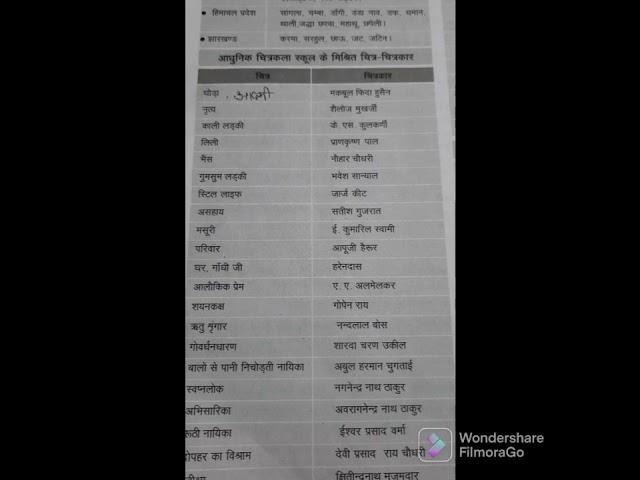 • हिमाचल प्रदेश सांगला, चम्बा, डाँगी, डंडा नाव, डफ, धमान,
थाली,जद्धा छरबा, महाथू, छपेली।
• झारखण्ड करमा, सरहुल, छाऊ, जट, जटिन।
आधुनिक चित्रकला स्कूल के मिश्रित चित्र-चित्रकार
चित्र चित्रकार
घोड़ा , आदमी मकबूल फिदा हुसैन
नृत्य शैलोज मुखर्जी
काली लड़की के. एस. कुलकर्णी
लिली प्राणकृष्ण पाल
भैंस नीहार चौधरी
गुमसुम लड़की भवेश सान्याल
स्टिल लाइफ जार्ज कीट
असहाय सतीश गुजरात
मसूरी ई. कुमारिल स्वामी
परिवार आपूजी हैरूर
घर, गाँधी जी हरेनदास
आलौकिक प्रेम ए. ए. अलमेलकर
शयनकक्ष गोपेन राय
ऋतु श्रृंगार नन्दलाल बोस
गोवर्धनधारण शारदा चरण उकील
बालो से पानी निचोड़ती नायिका अबुल हरमान चुगताई
स्वप्नलोक नगनेन्द्र नाथ ठाकुर
अभिसारिका अवरागनेन्द्र नाथ ठाकुर
रूठी नायिका ईश्वर प्रसाद वर्मा
दोपहर का विश्राम देवी प्रसाद राय चौधरी
क्षितीन्द्रनाथ मजूमदार
Wondershare
FilmoraGo